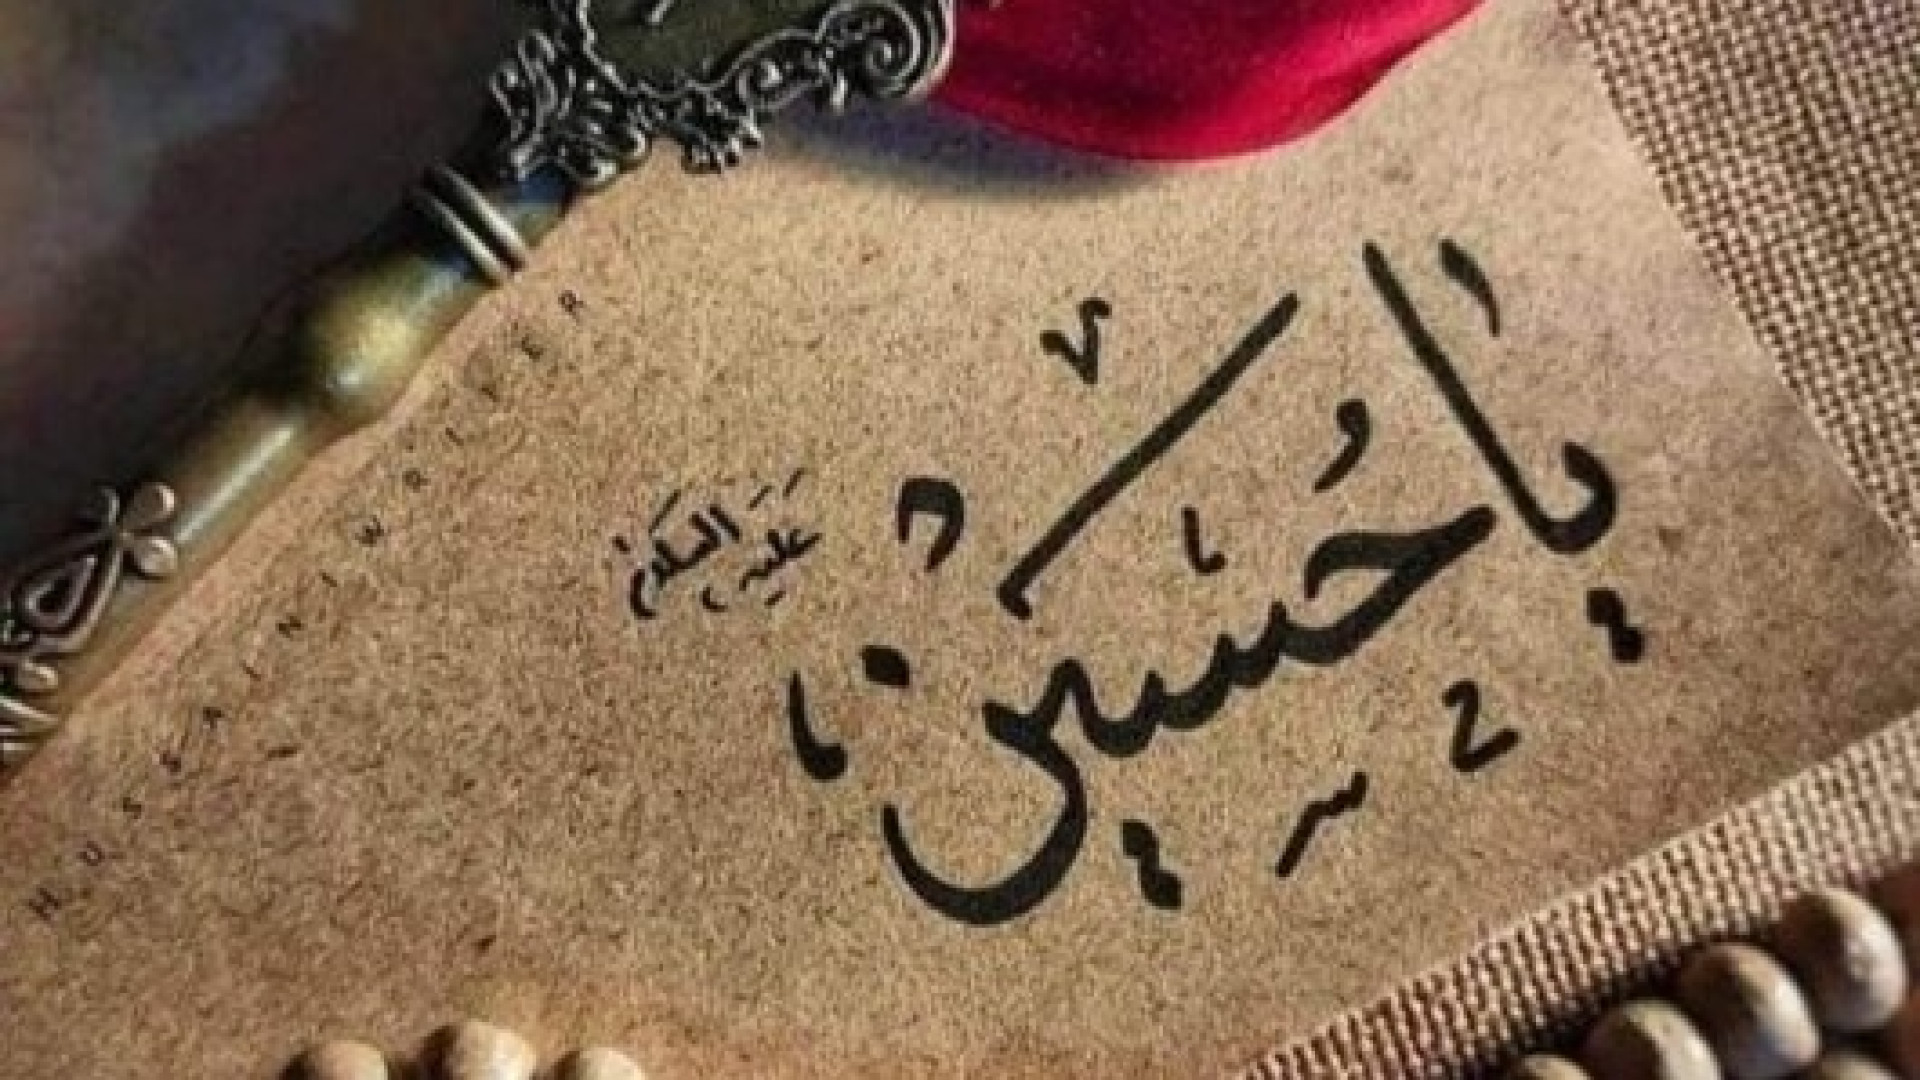 يَا حُسَيْن
عَلَيهِ السَّلَام
HUSSAINIWRITER